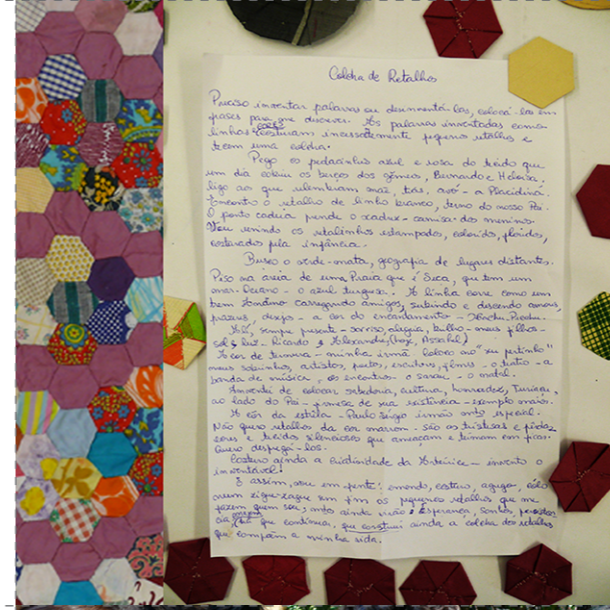 Colcha de Retalhos
Preciso inventar palavras ou desinventá-las, colocá-las em
frases para me discrever. As palavras inventadas como
linhas cores costuram incessantemente pequenos retalhos e
tecem uma colcha.
Pego os pedacinhos azul e rosa do tecido que
um dia cobriu os berços dos gêmeos, Bernardo e Heloisa,
ligo ao que relembram mãe, tias, avó - a Placidina.
Encontro o retalho de linho branco, terno do nosso Pai.
O ponto cadeia prende o xadrez - camisa dos meninos.
Vou unindo os retalinhos estampados, colorido, floridos,
costurados pela infância.
Busco o verde-mata, geografia de lugares distantes.
Piso na areia de uma Praia que é Seca, que tem um
mar-Oceano - o azul turquesa. A linha corre como um
trem carregando amigos, subindo e descendo amores,
prazeres, desejos - a cor do encantamento
sempre presente - sorriso, alegria, brilho - meus filhos -
sol e luz - Ricardo e Alexandre
A cor da ternura - minha irmã coloco ao "seu pertinho"
meus sobrinhos, artistas, poetas, escritora, gêmeos - o teatro - a
banda de música, os encontros - o sarau - o natal.
de colocar sabedoria, cultura, honradez,
ao lado do Pai - a mesa de sua existência - exemplo maior.
A cor da estrela - Paulo Sérgio irmão muito especial.
Não quero retalhos da cor marrom - são as tristezas e
cores e tecidos silenciosos que ameaçam e teimam em ficar.
Quero despegá-los.
Costuro ainda a - invento o
inventável!
E assim, sou em frente: emendo, costuro,
num zigue-zague sem fim os pequenos retalhos que me
fazem quem sou; onde ainda Esperança, Sonhos,
que continua, que construi ainda a colcha dos retalhos
que compõem a minha vida.